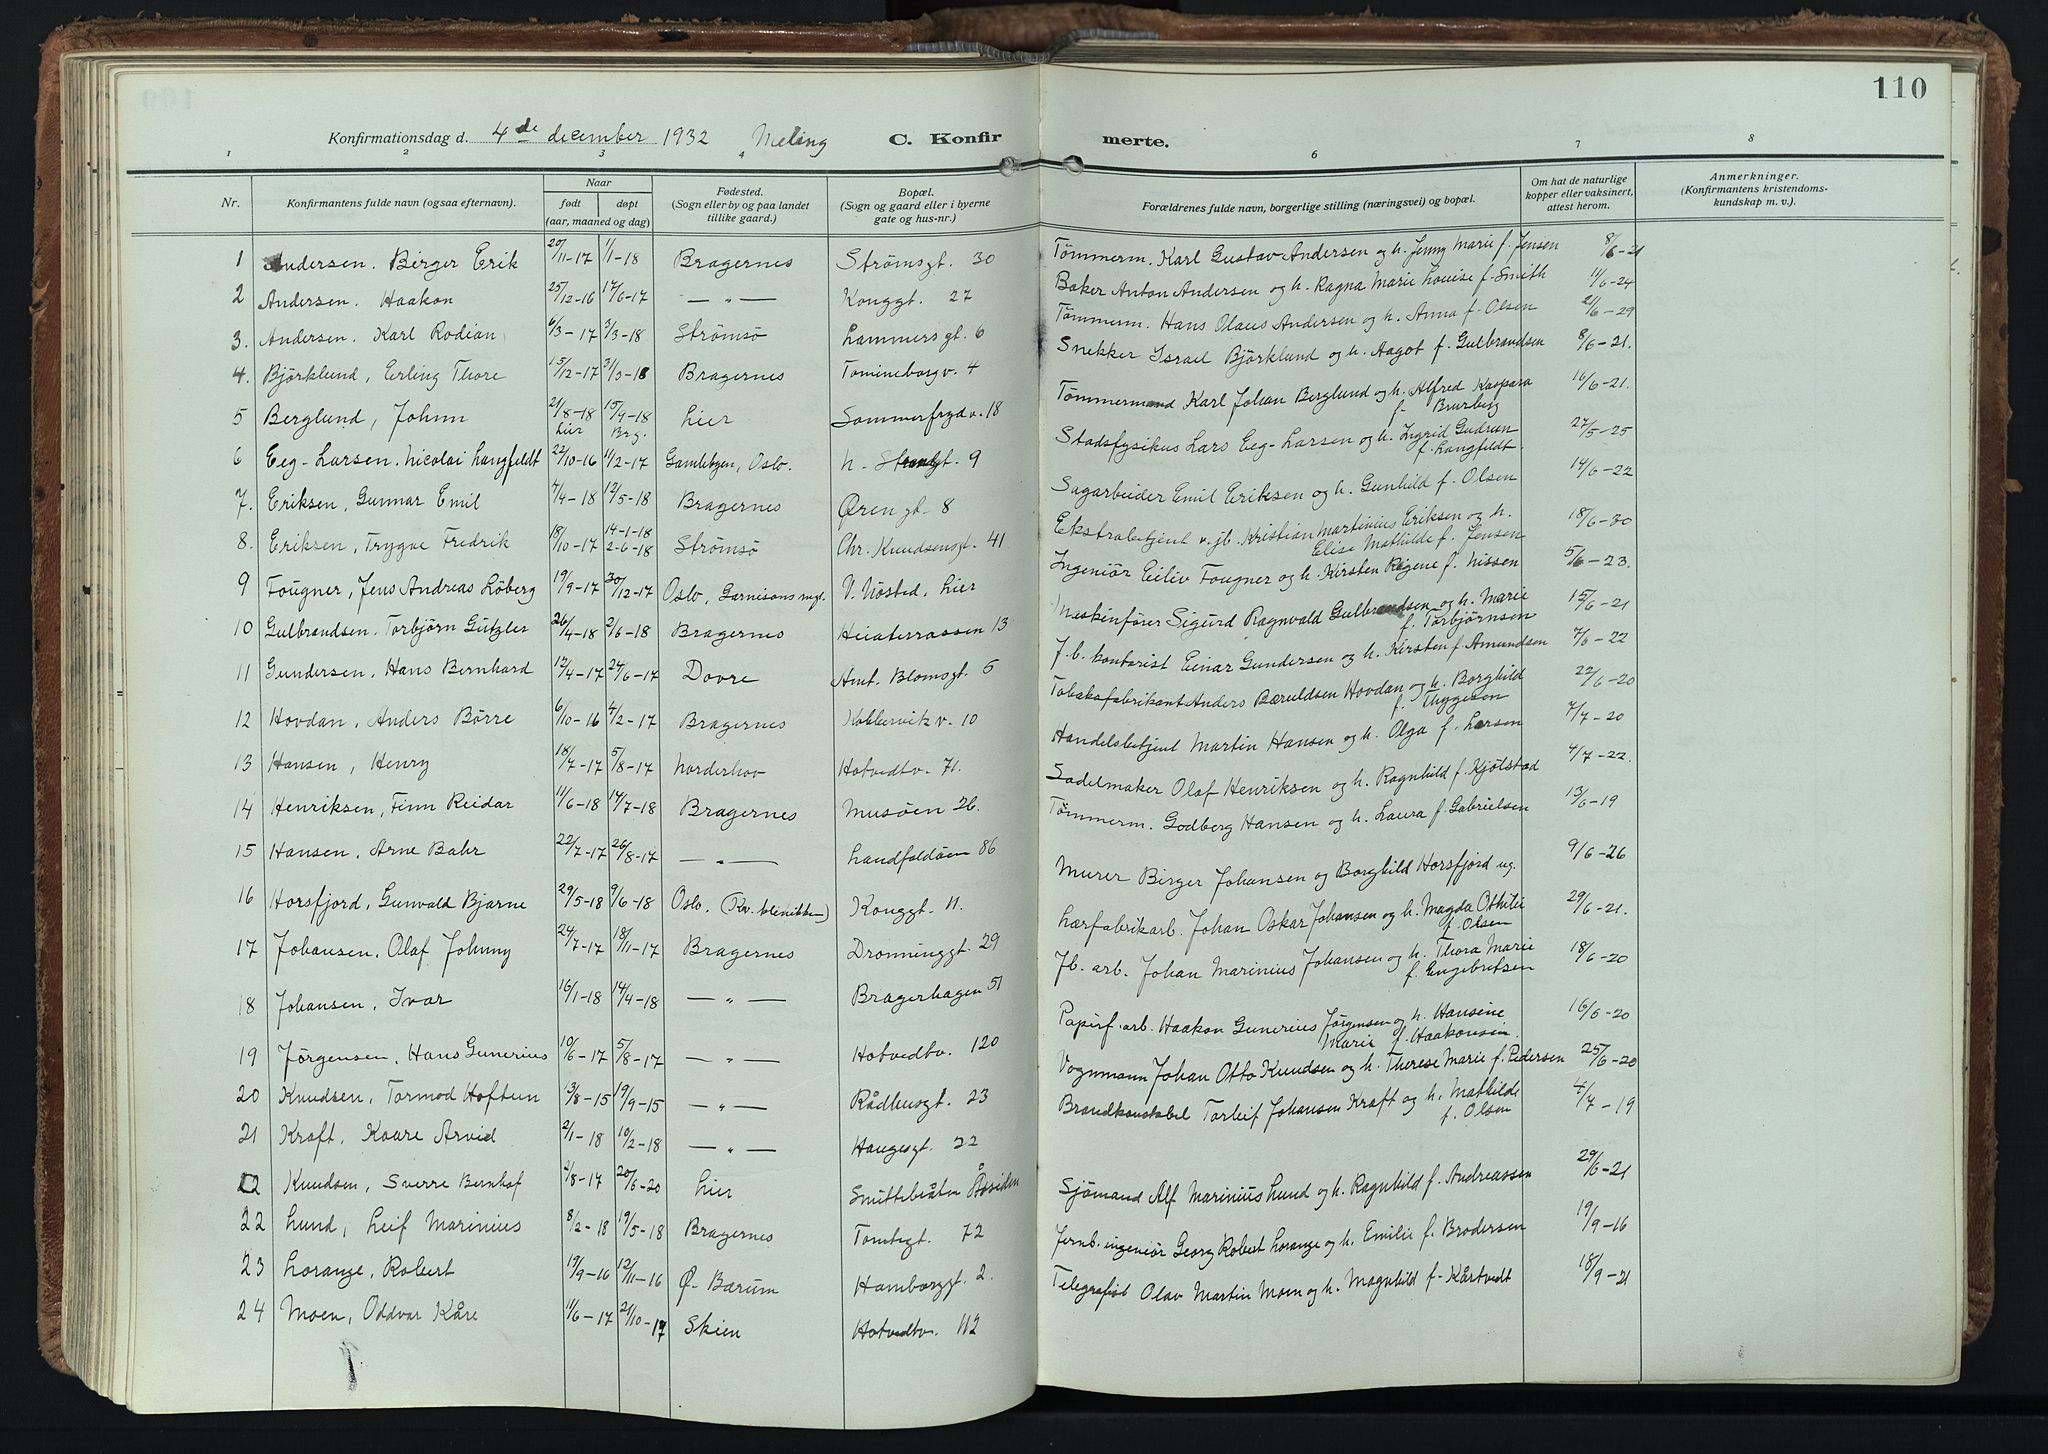 110
Konfirmationsdag d. 4de december 1932 Meling C. Konfir merte.
1 2 3 4 6 7 8
Nr.
Konfirmantens fulde navn (ogsaa efternavn).
Naar
født døpt
(aar, maaned og dag)
Fødested.
(Sogn eller by og paa landet
tillike gaard.)
Bopæl.
(Sogn og gaard eller i byerne
gate og hus-nr.)
Forældrenes fulde navn, borgerlige stilling (næringsvei) og bopæl.
Om hat de naturlige
kopper eller vaksinert,
attest herom.
Anmerkninger.
(Konfirmantens kristendoms-
kundskap m. v.).
1 Andersen. Birger Erik 20/11-17 1/1-18 Bragernes Strømsgt. 30
2 Andersen. Haakon 25/12-16 17/6-17 — „ — Konggt. 27
3. Andersen. Karl Rodian 6/3-17 3/3-18 Strømsø Lammersgt. 6
4. Björklund, Erling Thore 15/12-17 31/3-18 Bragernes Tomineborgv. 4
5 Berglund, Johnn 21/8-18 15/4-18 Lier Sommerfrydv. 18
Lier Brg.
6 Eeg-Larsen. Nicolai Langfeldt 22/10-16 11/2-17 Gamlebyen, Oslo. N. Strandgt. 9
7. Eriksen, Gunnar Emil 4/4-18 12/5-18 Bragernes Øren gt. 8
8. Eriksen, Trygve Fredrik 18/10-17 14-1-18 2-6-18 Strømsø Chr. Knudsensgt. 41
9 Fougner, Jens Andreas Löberg 19/9-17 30/12-17 Oslo, Garnisons mgt. V. Nøsted, Lier
10 Gulbrandsen. Torbjörn Gutzler 26/4-18 2/6-18 Bragernes Heiaterrassen 13
11 Gundersen, Hans Bernhard 12/4-17 24/6-17 Dovre Amt. Blomsgt. 5
12 Hovdan, Anders Børre 6/10-16 4/2-17 Bragernes Kobbervikv. 10
13 Hansen, Henry 18/7-17 5/8-17 Norderhov Hotvedtv. 71.
14 Henriksen, Finn Reidar 11/6-18 14/7-18 Bragernes Musøen 26.
15 Hansen, Arne Bahr 22/7-17 26/8-17 — „ — Landfaldøen 86
16 Horsfjord, Gunvald Bjarne 29/5-18 9/6-18 Oslo. (Kv. klinikken) Konggt. 11.
17 Johansen. Olaf Johnny 24/7-17 18/11-17 Bragernes Dronninggt. 29
18 Johansen, Ivar 16/1-18 14/4-18 — „ — Bragerhagen 51
19 Jørgensen, Hans Gunerius 10/6-17 5/8-17 — „ — Hotvedtv. 120
20 Knudsen, Tormod Hoftun 13/8-15 19/9-15 — „ — Rådhusgt. 23
21 Kraft, Kaare Arvid 2/1-18 10/2-18 — „ — Haugesgt. 22
22 Knudsen, Sverre Bernhof 2/8-17 20/6-20 Lier Smuttebråten Åssiden
22 Lund, Leif Marinius 8/2-18 19/5-18 Bragernes Tomtegt. 72
23 Lorange, Robert 19/9-16 12/11-16 Ø. Bærum Hamborggt 2.
24 Moen, Oddvar Kåre 11/6-17 21/10-17 Skien Hotvedtv. 112
Tømmerm. Karl Gustav Andersen og h. Jenny Marie f. Jensen 8/6-21
Baker Anton Andersen og h. Ragna Marie Louise f. Smith 11/6-24
Tömmerm. Hans Olaus Andersen og h. Anna f. Olsen 21/6-29
Snekker Israel Björklund og h. Aagot f. Gulbrandsen 8/6-21.
Tömmermand Karl Johan Berglund og h. Alfred Kaspara 16/6-21.
f. Brurberg
Stadsfysikus Lars Eeg-Larsen og h. Ingrid Gudrun 27/5-25
f. Langfeldt.
Sagarbeider Emil Eriksen og h. Gunhild f. Olsen 14/6-22
Ekstrabetjent v. jb. Kristian Martinius Eriksen og h. 18/6-30
Elise Mathilde f. Jensen
Ingeniör Eiliv Fougner og h. Kirsten Regene f. Nissen 5/6-23.
Maskinfører Sigurd Ragnvald Gulbrandsen og h. Marie 15/6-21
f. Torbjörnsen
J.b. kontorist Einar Gundersen og h. Kirsten f. Amundsen 7/6-22
Tobaksfabrikant Anders Bæruldsen Hovdan og h. Borghild 22/6-20
f. Thygesen
Handelsbetjent Martin Hansen og h. Olga f. Larsen 7/7-20
Sadelmaker Olaf Henriksen og h. Ragnhild f. Kjölstad 4/7-22.
Tømmerm. Godberg Hansen og h. Laura f. Gabrielsen 13/6-19
Murer Birger Johansen og Borghild Horsfjord ug. 9/6-26
Lærfabrikarb. Johan Oskar Johansen og h. Magda Othilie 29/6-21.
f. Olsen
Jb. arb. Johan Marinius Johansen og h. Thora Marie 18/6-20
f. Engebretsen
Papirf. arb. Haakon Gunerius Jørgensen og h. Hansine 16/6-20
Marie f. Haakonsen
Vognmann Johan Otto Knudsen og h. Therese Marie f. Pedersen 25/6-20
Brandkonstabel Torleif Johansen Kraft og h. Mathilde 4/7-19
f. Olsen
Sjømand Alf Marinius Lund og h. Ragnhild f. Andreassen 29/6-21
Jernb. ingeniör Georg Robert Lorange og h. Emilie f. Brodersen 19/9-16
Telegrafist Olav Martin Moen og h. Magnhild f. Kårtvedt 18/9-21